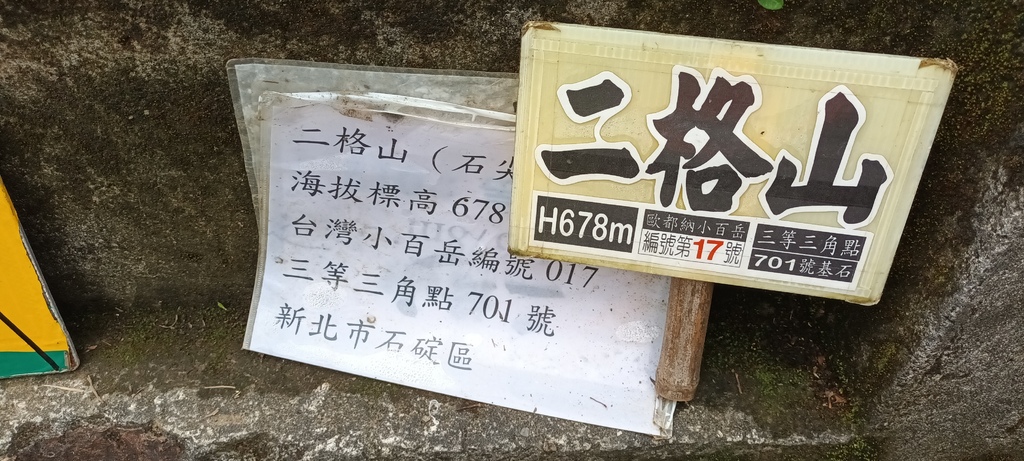 二格山（石尖
海拔標高 678
台灣小百岳編號 017
三等三角點 701 號
新北市石碇區
二格山
H678m
歐都納小百岳
編號第17號
三等三角點
701號基石